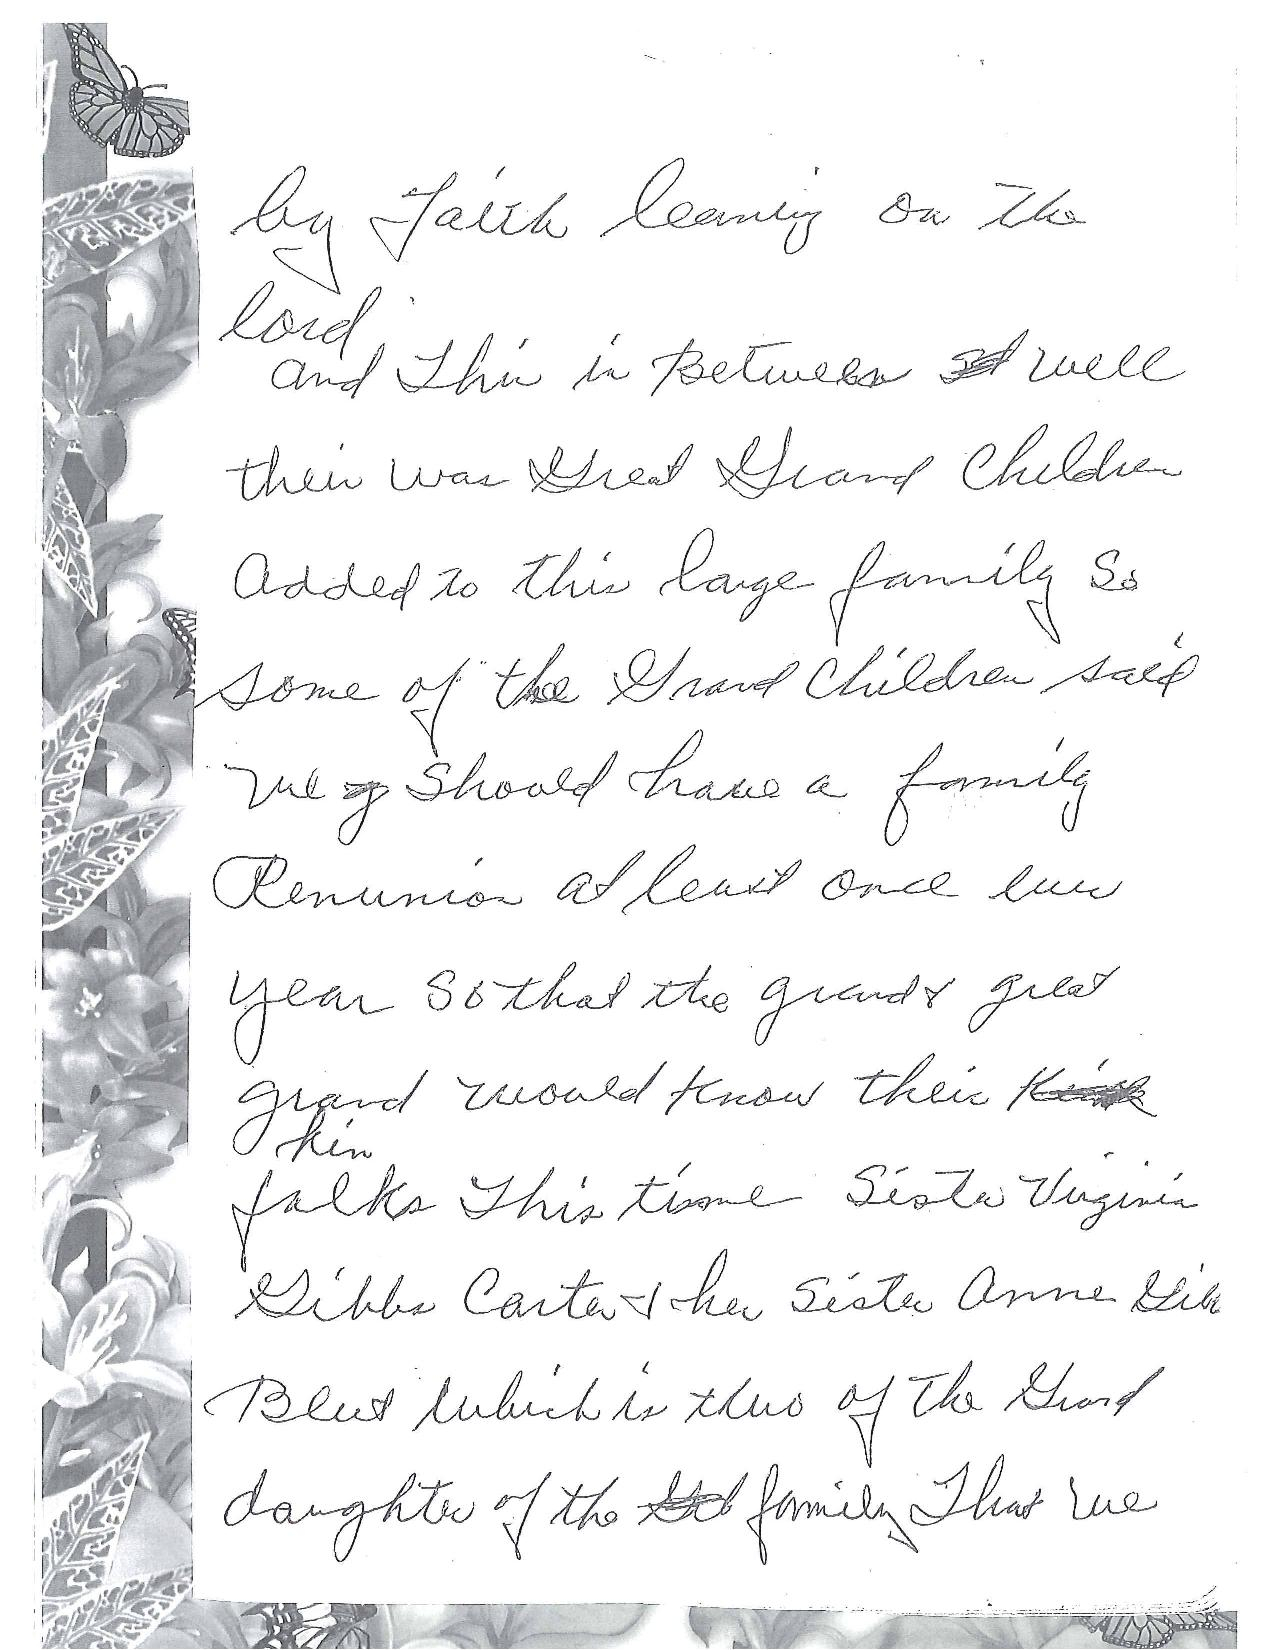 by Faith leaning on the
lord
and This in Between well
their was Great Grand Children
Added to this large family So
some of the Grand Children said
we should have a family
Renunion at least once
year So that the grand & great
grand would know their
kin
folks This time Sister Virginia
Gibbs Carter & her Sister Anne Gibb
Blut which is two of The Grand
daughter of the family That we